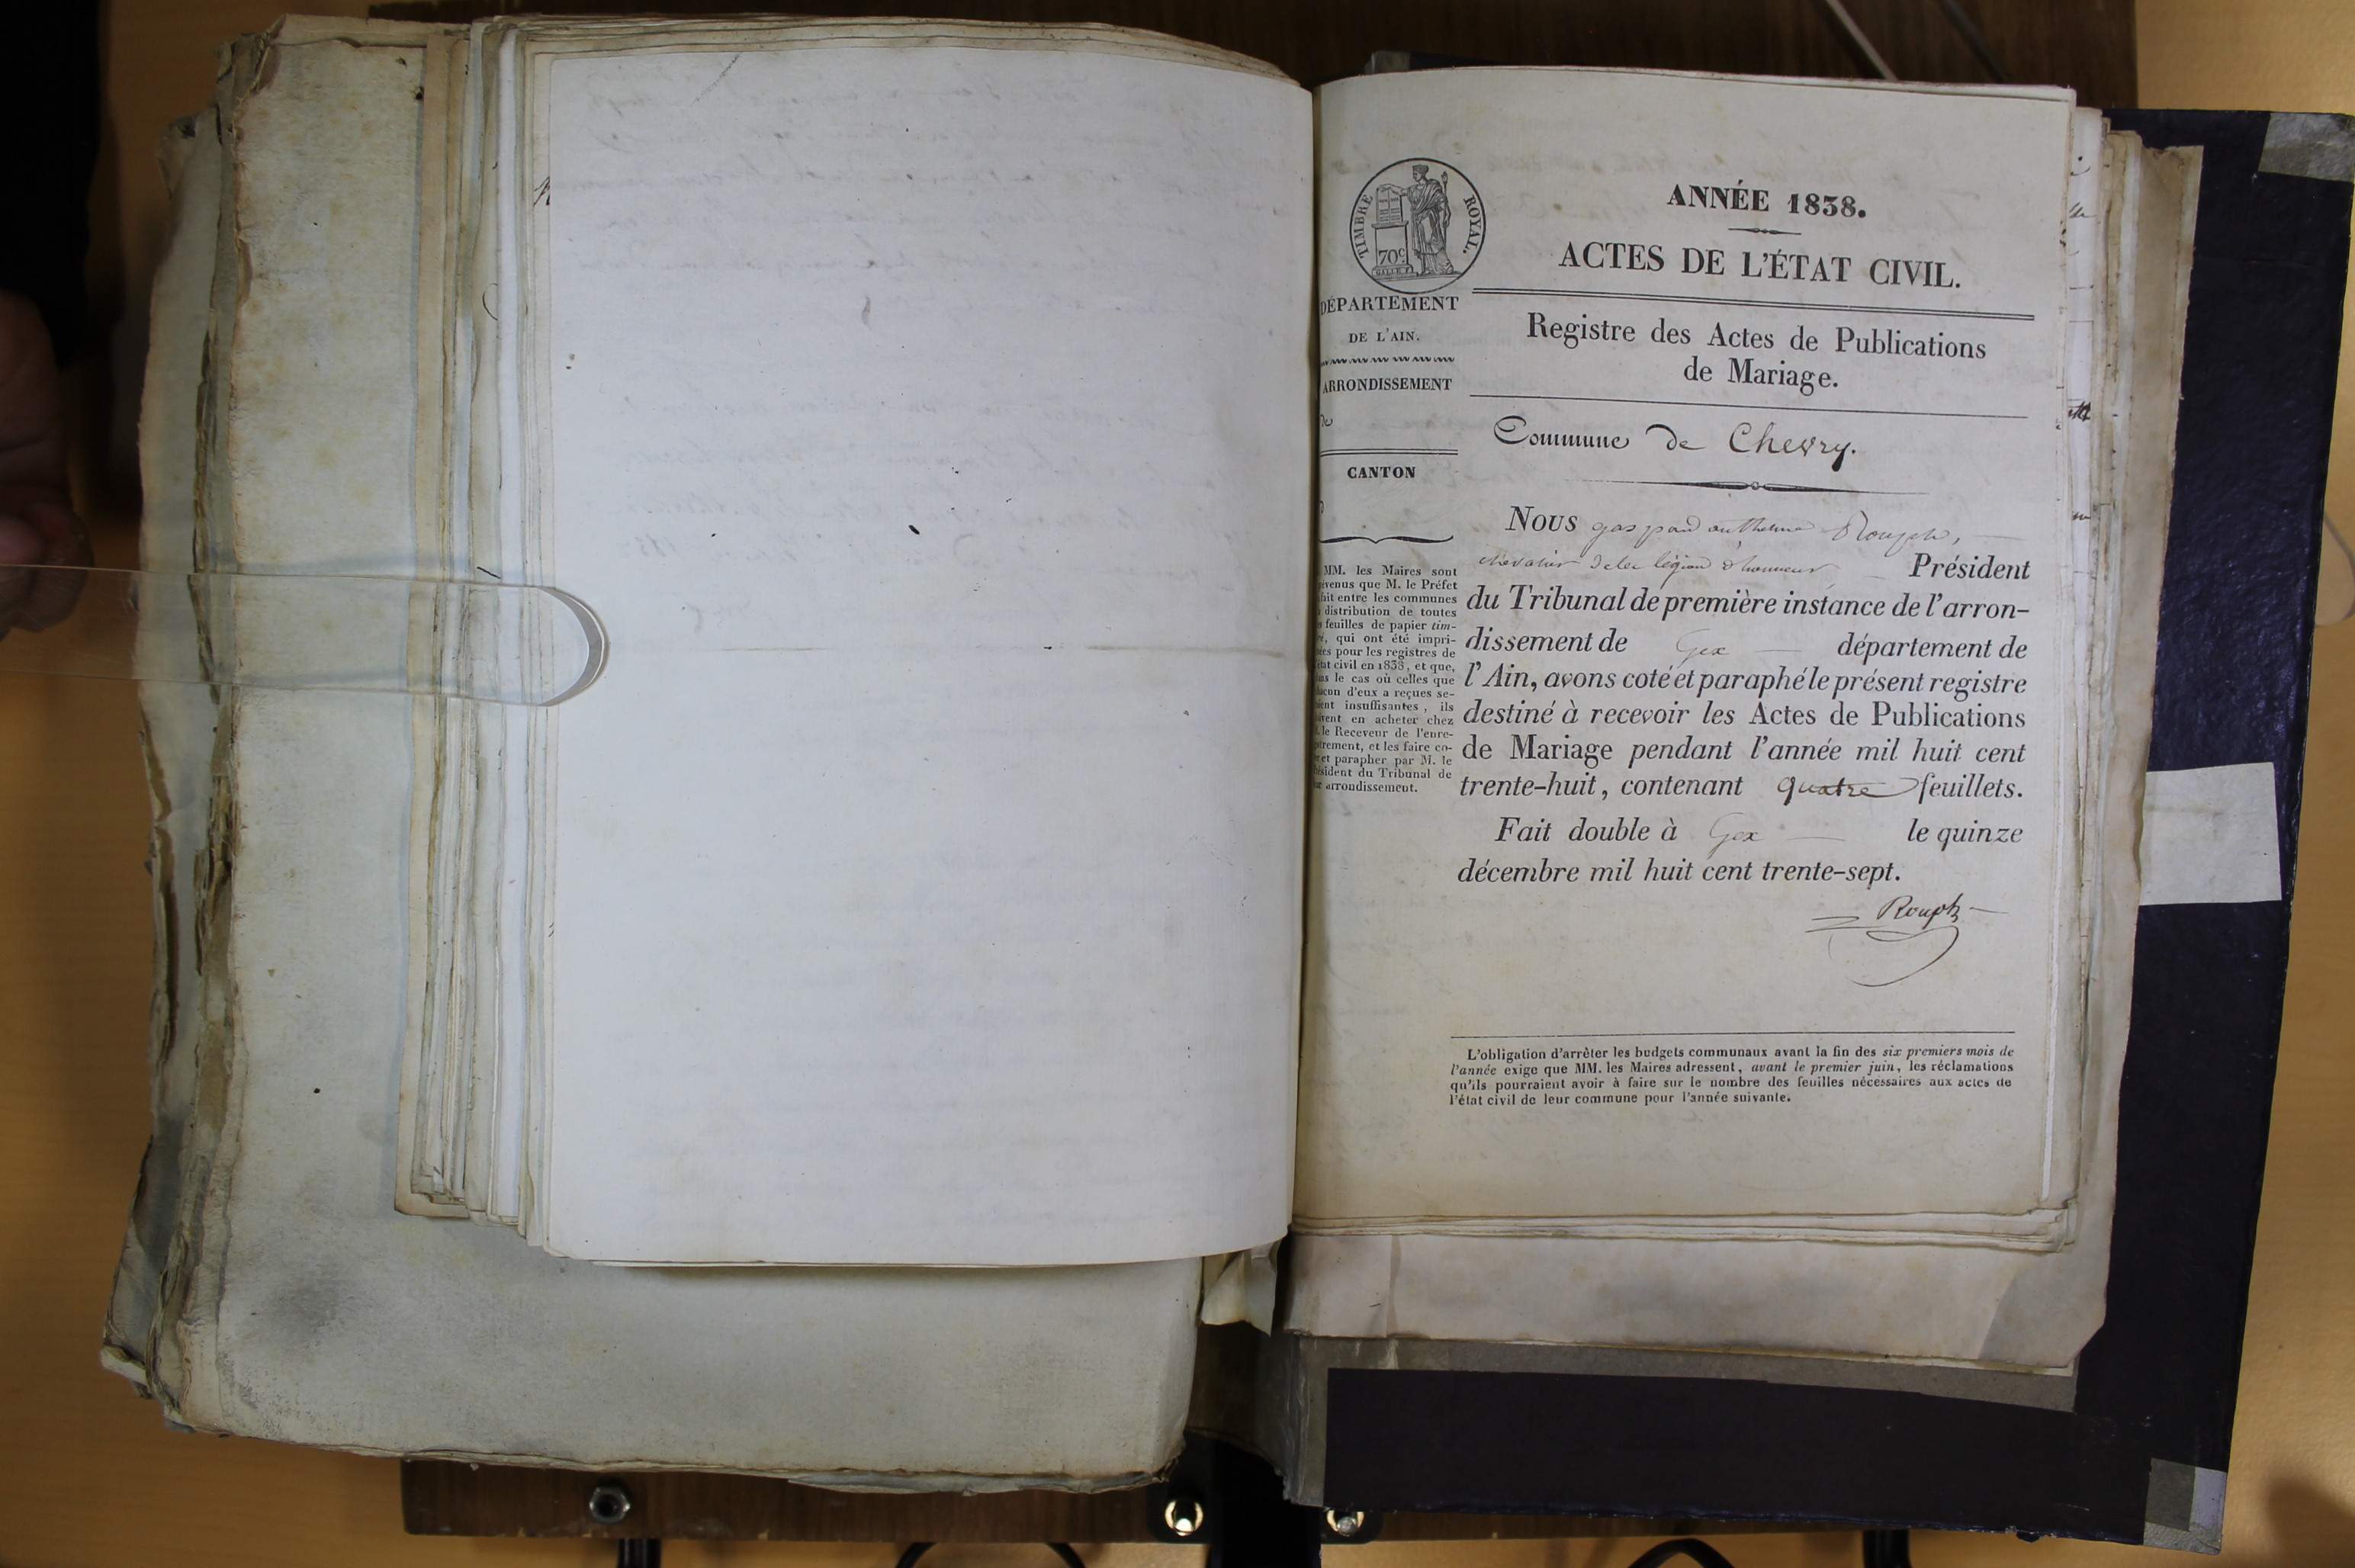 TIMBRE ROYAL.
70c
ANNÉE 1838.
ACTES DE L'ÉTAT CIVIL.
DÉPARTEMENT
DE L'AIN.
ARRONDISSEMENT
de
CANTON
MM. les Maires sont
que M. le Préfet
fait entre les communes
distribution de toutes
feuilles de papier tim-
, qui ont été impri-
pour les registres de
civil en 1838, et que,
le cas où celles que
d'eux a reçues se-
insuffisantes, ils
en acheter chez
le Receveur de l'enre-
, et les faire co-
et parapher par M. le
du Tribunal de
arrondissement.
Registre des Actes de Publications
de Mariage.
Commune de Chevry.
Nous gaspard anthelme Rouph,
chevalier de la légion d'honneur, Président
du Tribunal de première instance de l'arron-
dissement de Gex département de
l'Ain, avons coté et paraphé le présent registre
destiné à recevoir les Actes de Publications
de Mariage pendant l'année mil huit cent
trente-huit, contenant quatre feuillets.
Fait double à Gex le quinze
décembre mil huit cent trente-sept.
Rouph
L'obligation d'arrêter les budgets communaux avant la fin des six premiers mois de
l'année exige que MM. les Maires adressent, avant le premier juin, les réclamations
qu'ils pourraient avoir à faire sur le nombre des feuilles nécessaires aux actes de
l'état civil de leur commune pour l'année suivante.